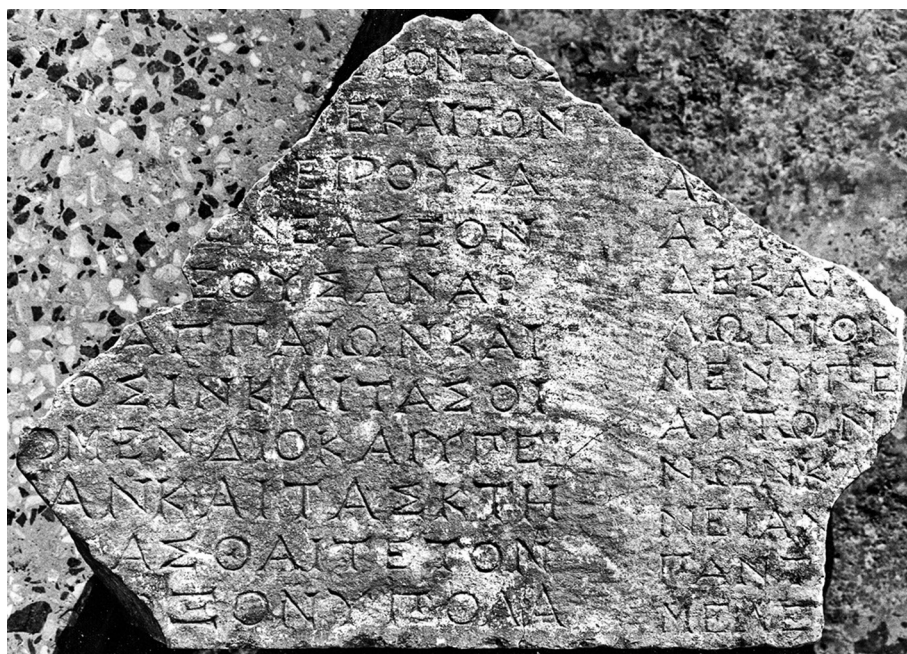 ΡΟΝΤΟΣ
ΕΚΑΙΤΟΝ
ΕΙΡΟΥΣΑ
ΝΕΑΣΕΟΝ
ΕΟΥΣΑΝΑΡ
ΑΓΠΑΙΩΝΚΑΙ
ΟΣΙΝΚΑΙΤΑΣΟΙ
ΟΜΕΝΔΙΟΚΑΙΥΠΕ
ΑΝΚΑΙΤΑΣΚΤΗ
ΑΣΘΑΙΤΕΤΟΝ
ΞΟΝΥΠΟΛΑ
Α
ΑΥΤ
ΔΕΚΑΙ
ΛΩΝΙΟΝ
ΜΕΝΥΠΕ
ΑΥΤΩΝ
ΝΩΝΚΑ
ΝΕΙΑΝ
ΠΑΝΞ
ΜΕΛΕ